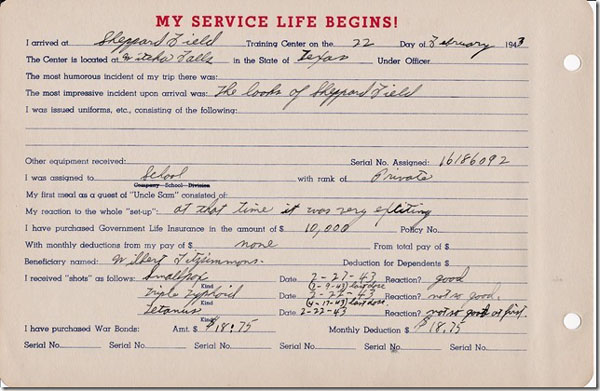 MY SERVICE LIFE BEGINS!
I arrived at Sheppard Field Training Center on the 22 Day of February 1943
The Center is located at Witcha Falls in the State of Texas Under Officer
The most humorous incident of my trip there was:
The most impressive incident upon arrival was: The looks of Sheppard Field
I was issued uniforms, etc., consisting of the following:
Other equipment received: Serial No. Assigned: 16186092
I was assigned to School with rank of Private
Company School Division
My first meal as a guest of "Uncle Sam" consisted of:
My reaction to the whole "set-up": at that time it was very exciting
I have purchased Government Life Insurance in the amount of $ 10,000 Policy No.
With monthly deductions from my pay of $ none From total pay of $
Beneficiary named: Wilbert Fitzimmons. Deduction for Dependents $
I received "shots" as follows: Smallpox Date 2-27-43 Reaction? good
Kind (3-9-43) last dose
Triple Typhoid Date 2-22-43 Reaction? not so good.
Kind (4-17-43) last dose.
Tetanus Date 2-22-43 Reaction? not so good at first.
Kind
I have purchased War Bonds: Amt. $ $18.75 Monthly Deduction $ $18.75
Serial No. Serial No. Serial No. Serial No. Serial No. Serial No.